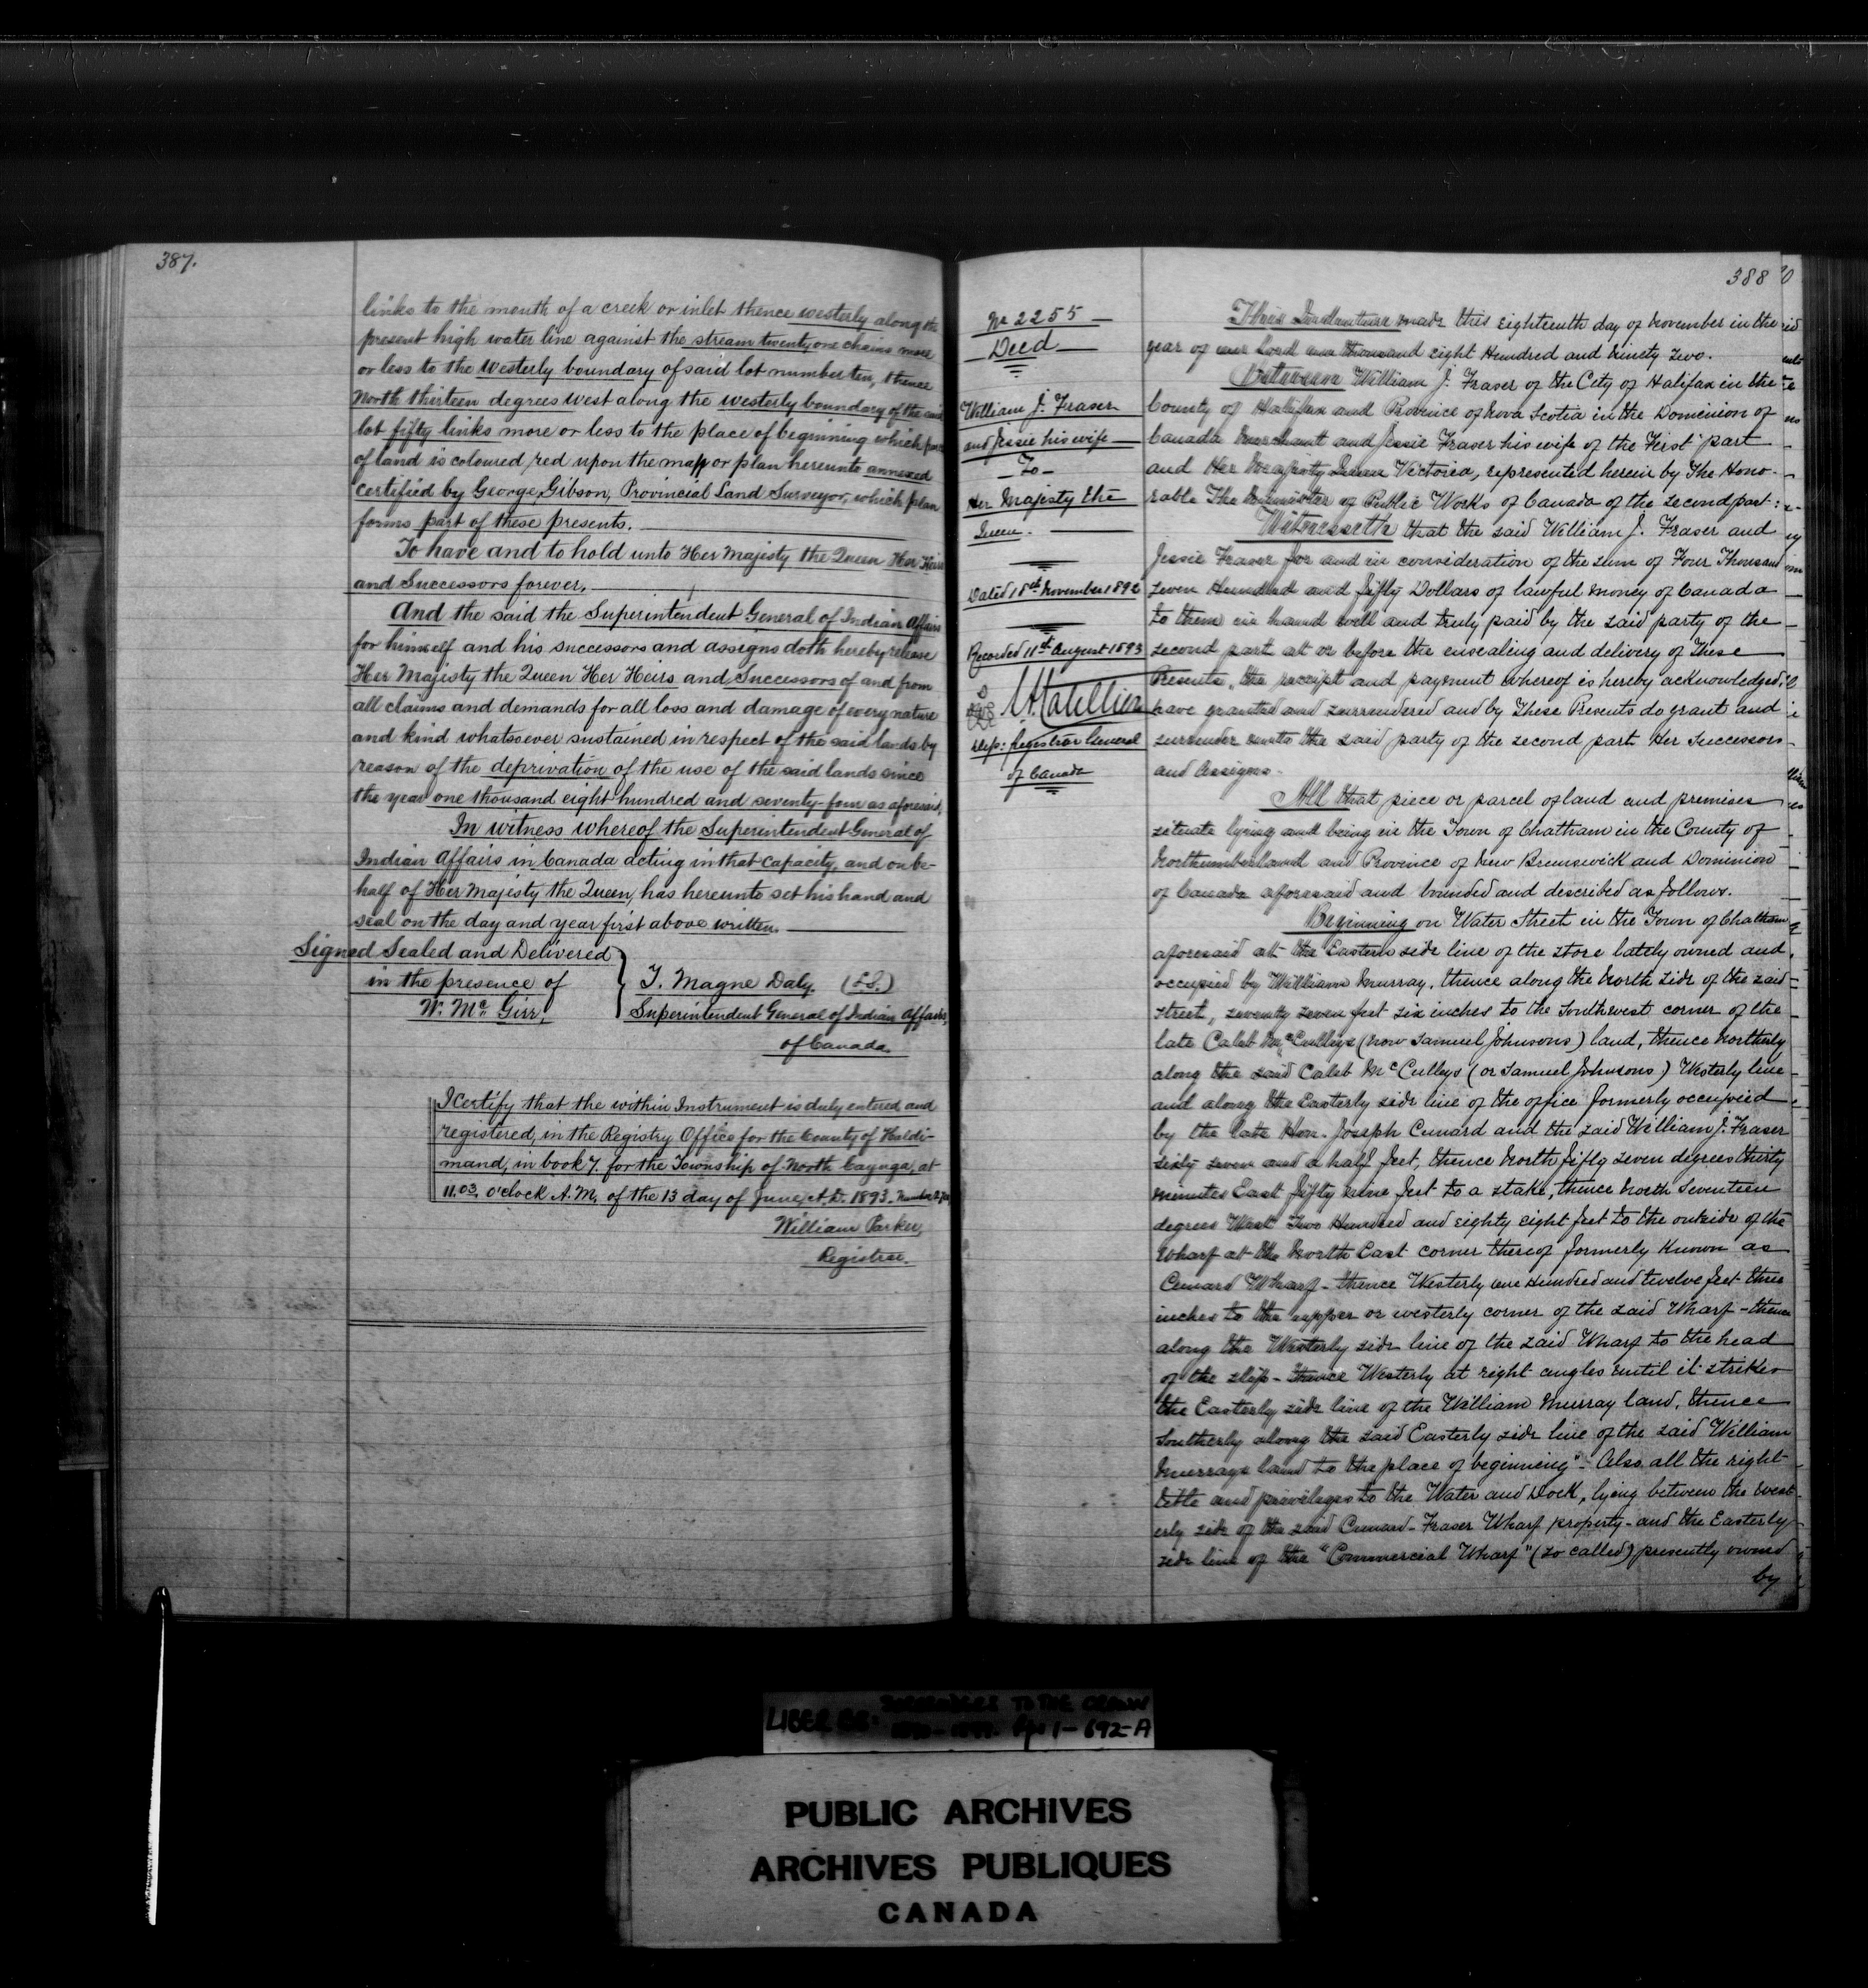 387.
links to the mouth of a creek or inlet thence westerly along the
present high water line against the stream twenty one chains more
or less to the westerly boundary of said lot number ten, thence
North thirteen degrees west along the westerly boundary of the said
lot fifty links more or less to the place of beginning which
of land is coloured red upon the map or plan hereunto annexed
certified by George Gibson, Provincial Land Surveyor, which plan
forms part of these presents.
To have and to hold unto Her Majesty the Queen Her Heirs
and Successors forever.
And the said the Superintendent General of Indian Affairs
for himself and his successors and assigns doth hereby release
Her Majesty the Queen Her Heirs and Successors of and from
all claims and demands for all loss and damage of every nature
and kind whatsoever sustained in respect of the said lands by
reason of the deprivation of the use of the said lands since
the year one thousand eight hundred and seventy-four as aforesaid,
In witness whereof the Superintendent General of
Indian Affairs in Canada acting in that capacity, and on be-
half of Her Majesty the Queen, has hereunto set his hand and
seal on the day and year first above written.
Signed Sealed and Delivered
in the presence of
W. Mc Girr,
T. Magne Daly. (L.S.)
Superintendent General of Indian Affairs,
of Canada.
I Certify that the within Instrument is duly entered and
registered, in the Registry Office for the County of Haldi-
mand, in book 7. for the Township of North Cayuga, at
11.03. o'clock A.M. of the 13 day of June, A.D. 1893.
William Parker,
Registrar.
388
No 2255
Deed
William J. Fraser
and Jessie his wife
To
Her Majesty the
Queen.
Dated 18th November 1892
Recorded 11th August 1893
Dep: Registrar General
of Canada
This Indenture made this eighteenth day of November in the
year of our Lord one thousand eight Hundred and Ninety two.
Between William J. Fraser of the City of Halifax in the
County of Halifax and Province of Nova Scotia in the Dominion of
Canada Merchant and Jessie Fraser his wife of the First part
and Her Majesty Queen Victoria, represented herein by The Hono-
rable The Minister of Public Works of Canada of the second part:
Witnesseth that the said William J. Fraser and
Jessie Fraser for and in consideration of the sum of Four Thousand
seven Hundred and fifty Dollars of lawful money of Canada
to them in hand well and truly paid by the said party of the
second part at or before the ensealing and delivery of These
Presents, the receipt and payment whereof is hereby acknowledged,
have granted and surrendered and by These Presents do grant and
surrender unto the said party of the second part Her Successors
and Assigns.
All that piece or parcel of land and premises
situate lying and being in the Town of Chatham in the County of
Northumberland and Province of New Brunswick and Dominion
of Canada aforesaid and bounded and described as follows.
Beginning on Water Street in the Town of Chatham
aforesaid at the Eastern side line of the store lately owned and
occupied by William Murray, thence along the North side of the said
street, seventy seven feet six inches to the Southwest corner of the
late Caleb McCulleys (now Samuel Johnsons) land, thence Northerly
along the said Caleb McCulleys (or Samuel Johnsons) Westerly line
and along the Easterly side line of the office formerly occupied
by the late Hon. Joseph Cunard and the said William J. Fraser
sixty seven and a half feet, thence North fifty seven degrees thirty
minutes East fifty nine feet to a stake, thence North Seventeen
degrees West Two Hundred and eighty eight feet to the outside of the
Wharf at the North East corner thereof formerly known as
Cunard Wharf - thence Westerly one Hundred and twelve feet three
inches to the upper or westerly corner of the said Wharf - thence
along the Westerly side line of the said Wharf to the head
of the slip - thence Westerly at right angles until it strikes
the Easterly side line of the William Murray land, thence
Southerly along the said Easterly side line of the said William
Murrays land to the place of beginning" - Also all the right
title and privileges to the Water and Dock, lying between the West-
erly side of the said Cunard-Fraser Wharf property - and the Easterly
side line of the "Commercial Wharf" (so called) presently owned
by
LIBER SURRENDERS TO THE CROWN
Pgs 1-692-A
PUBLIC ARCHIVES
ARCHIVES PUBLIQUES
CANADA